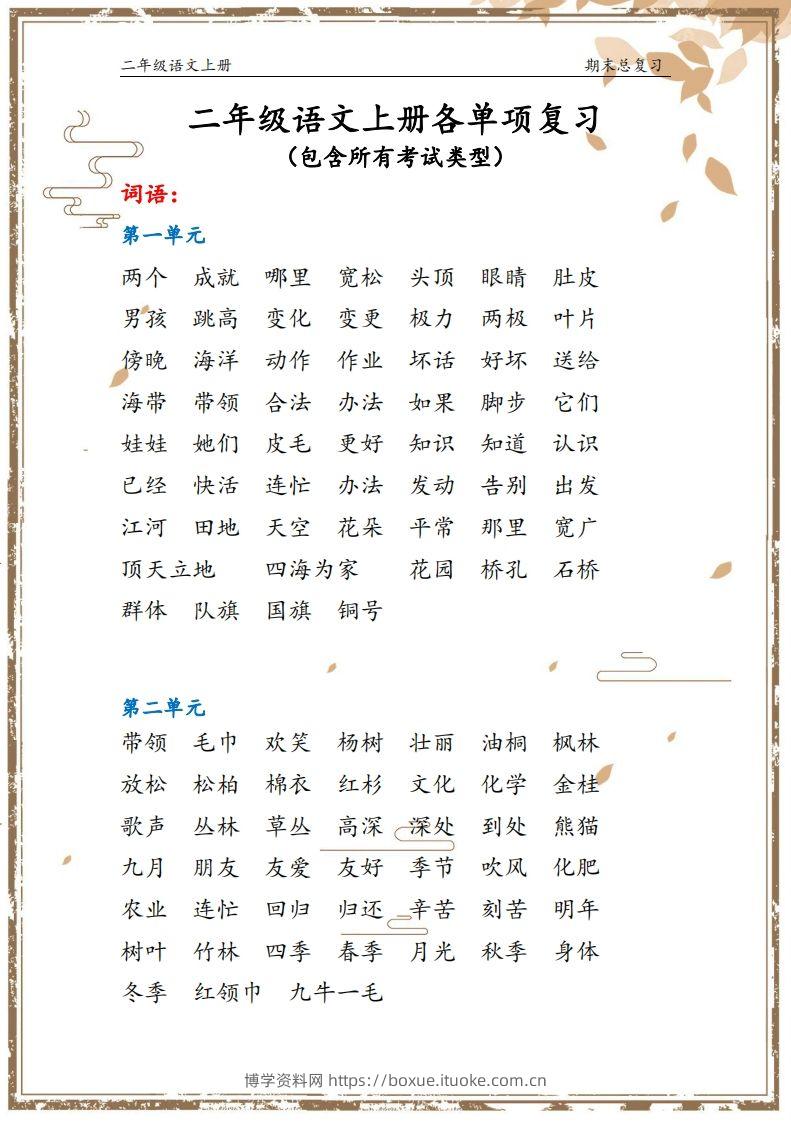 二年级语文上册 期末总复习
二年级语文上册各单项复习
（包含所有考试类型）
词语：
第一单元
两个 成就 哪里 宽松 头顶 眼睛 肚皮
男孩 跳高 变化 变更 极力 两极 叶片
傍晚 海洋 动作 作业 坏话 好坏 送给
海带 带领 合法 办法 如果 脚步 它们
娃娃 她们 皮毛 更好 知识 知道 认识
已经 快活 连忙 办法 发动 告别 出发
江河 田地 天空 花朵 平常 那里 宽广
顶天立地 四海为家 花园 桥孔 石桥
群体 队旗 国旗 铜号
第二单元
带领 毛巾 欢笑 杨树 壮丽 油桐 枫林
放松 松柏 棉衣 红杉 文化 化学 金桂
歌声 丛林 草丛 高深 深处 到处 熊猫
九月 朋友 友爱 友好 季节 吹风 化肥
农业 连忙 回归 归还 辛苦 刻苦 明年
树叶 竹林 四季 春季 月光 秋季 身体
冬季 红领巾 九牛一毛
博学资料网 https://boxue.ituoke.com.cn